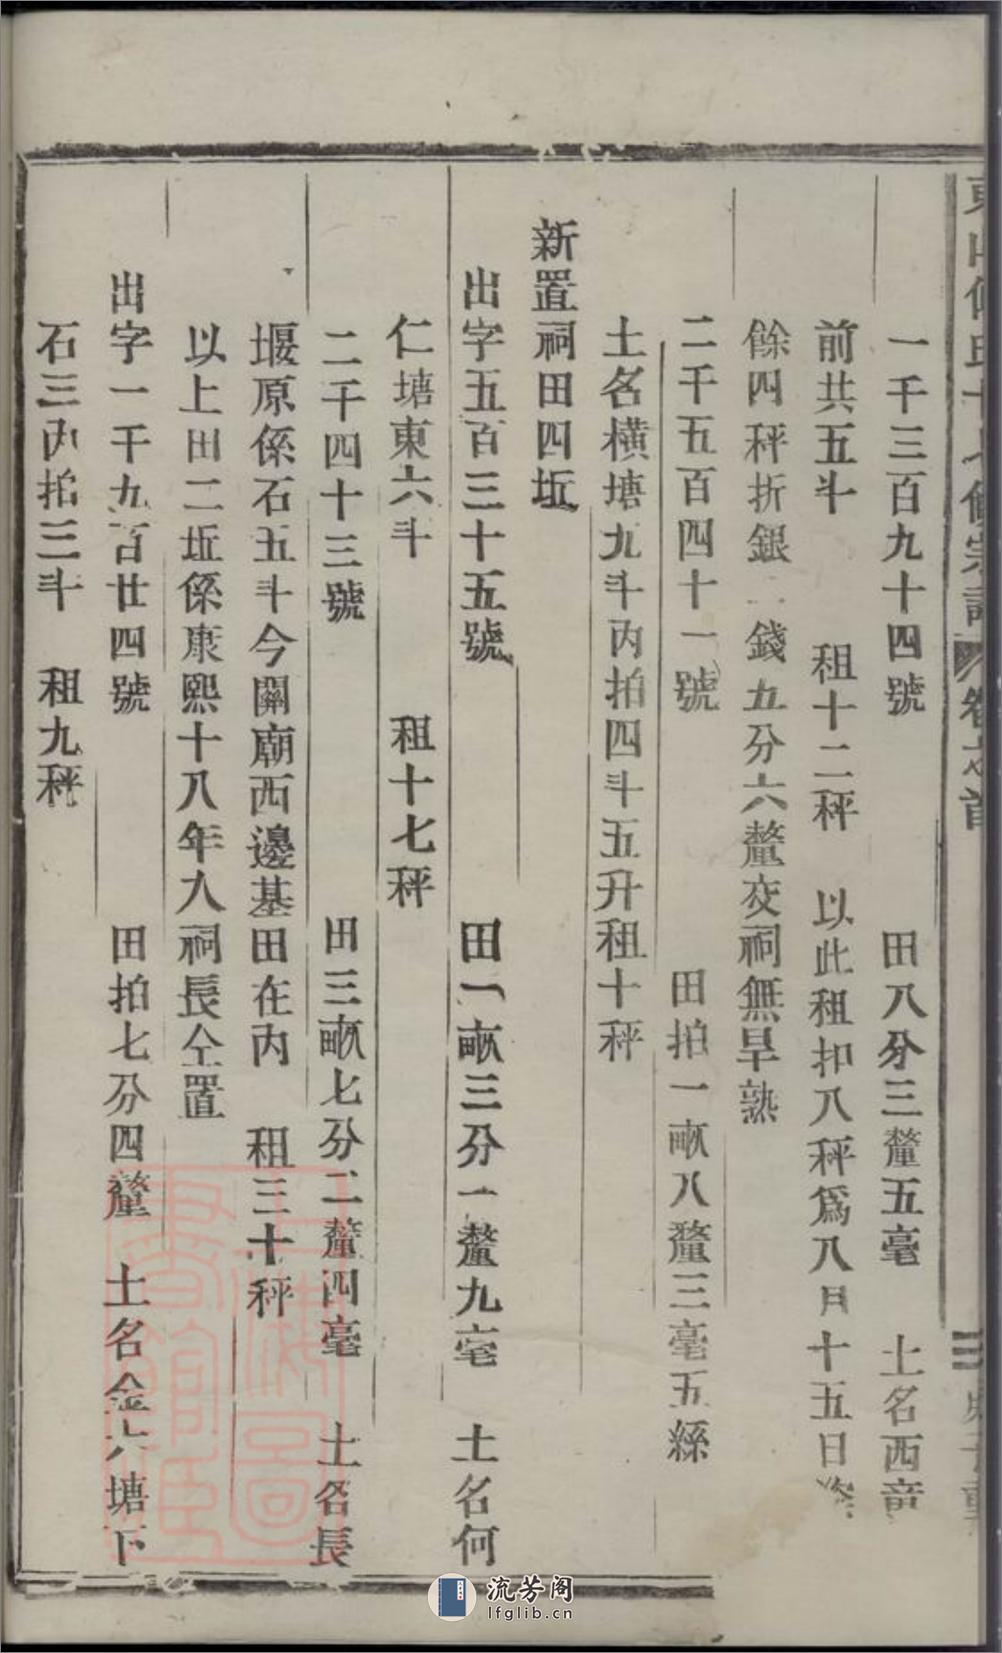 一千三百九十四號 田八分三釐五毫 土名西章
前共五斗 租十二秤 以此租扣八秤爲八月十五日
餘四秤折銀一錢五分六釐交祠無旱熟
二千五百四十一號 田拍一畝八釐三毫五絲
土名橫塘九斗內拍四斗五升租十秤
新置祠田四坵
出字五百三十五號 田一畝三分一釐九毫 土名何
仁塘東六斗 租十七秤
二千四十三號 田三畝七分二釐四毫 土名長
堰原係石五斗今關廟西邊基田在內 租三十秤
以上田二坵係康熙十八年八祠長仝置
出字一千九百廿四號 田拍七分四釐 土名金六塘下
石三內拍三斗 租九秤
上海圖書館藏
流芳阁
lfglib.cn